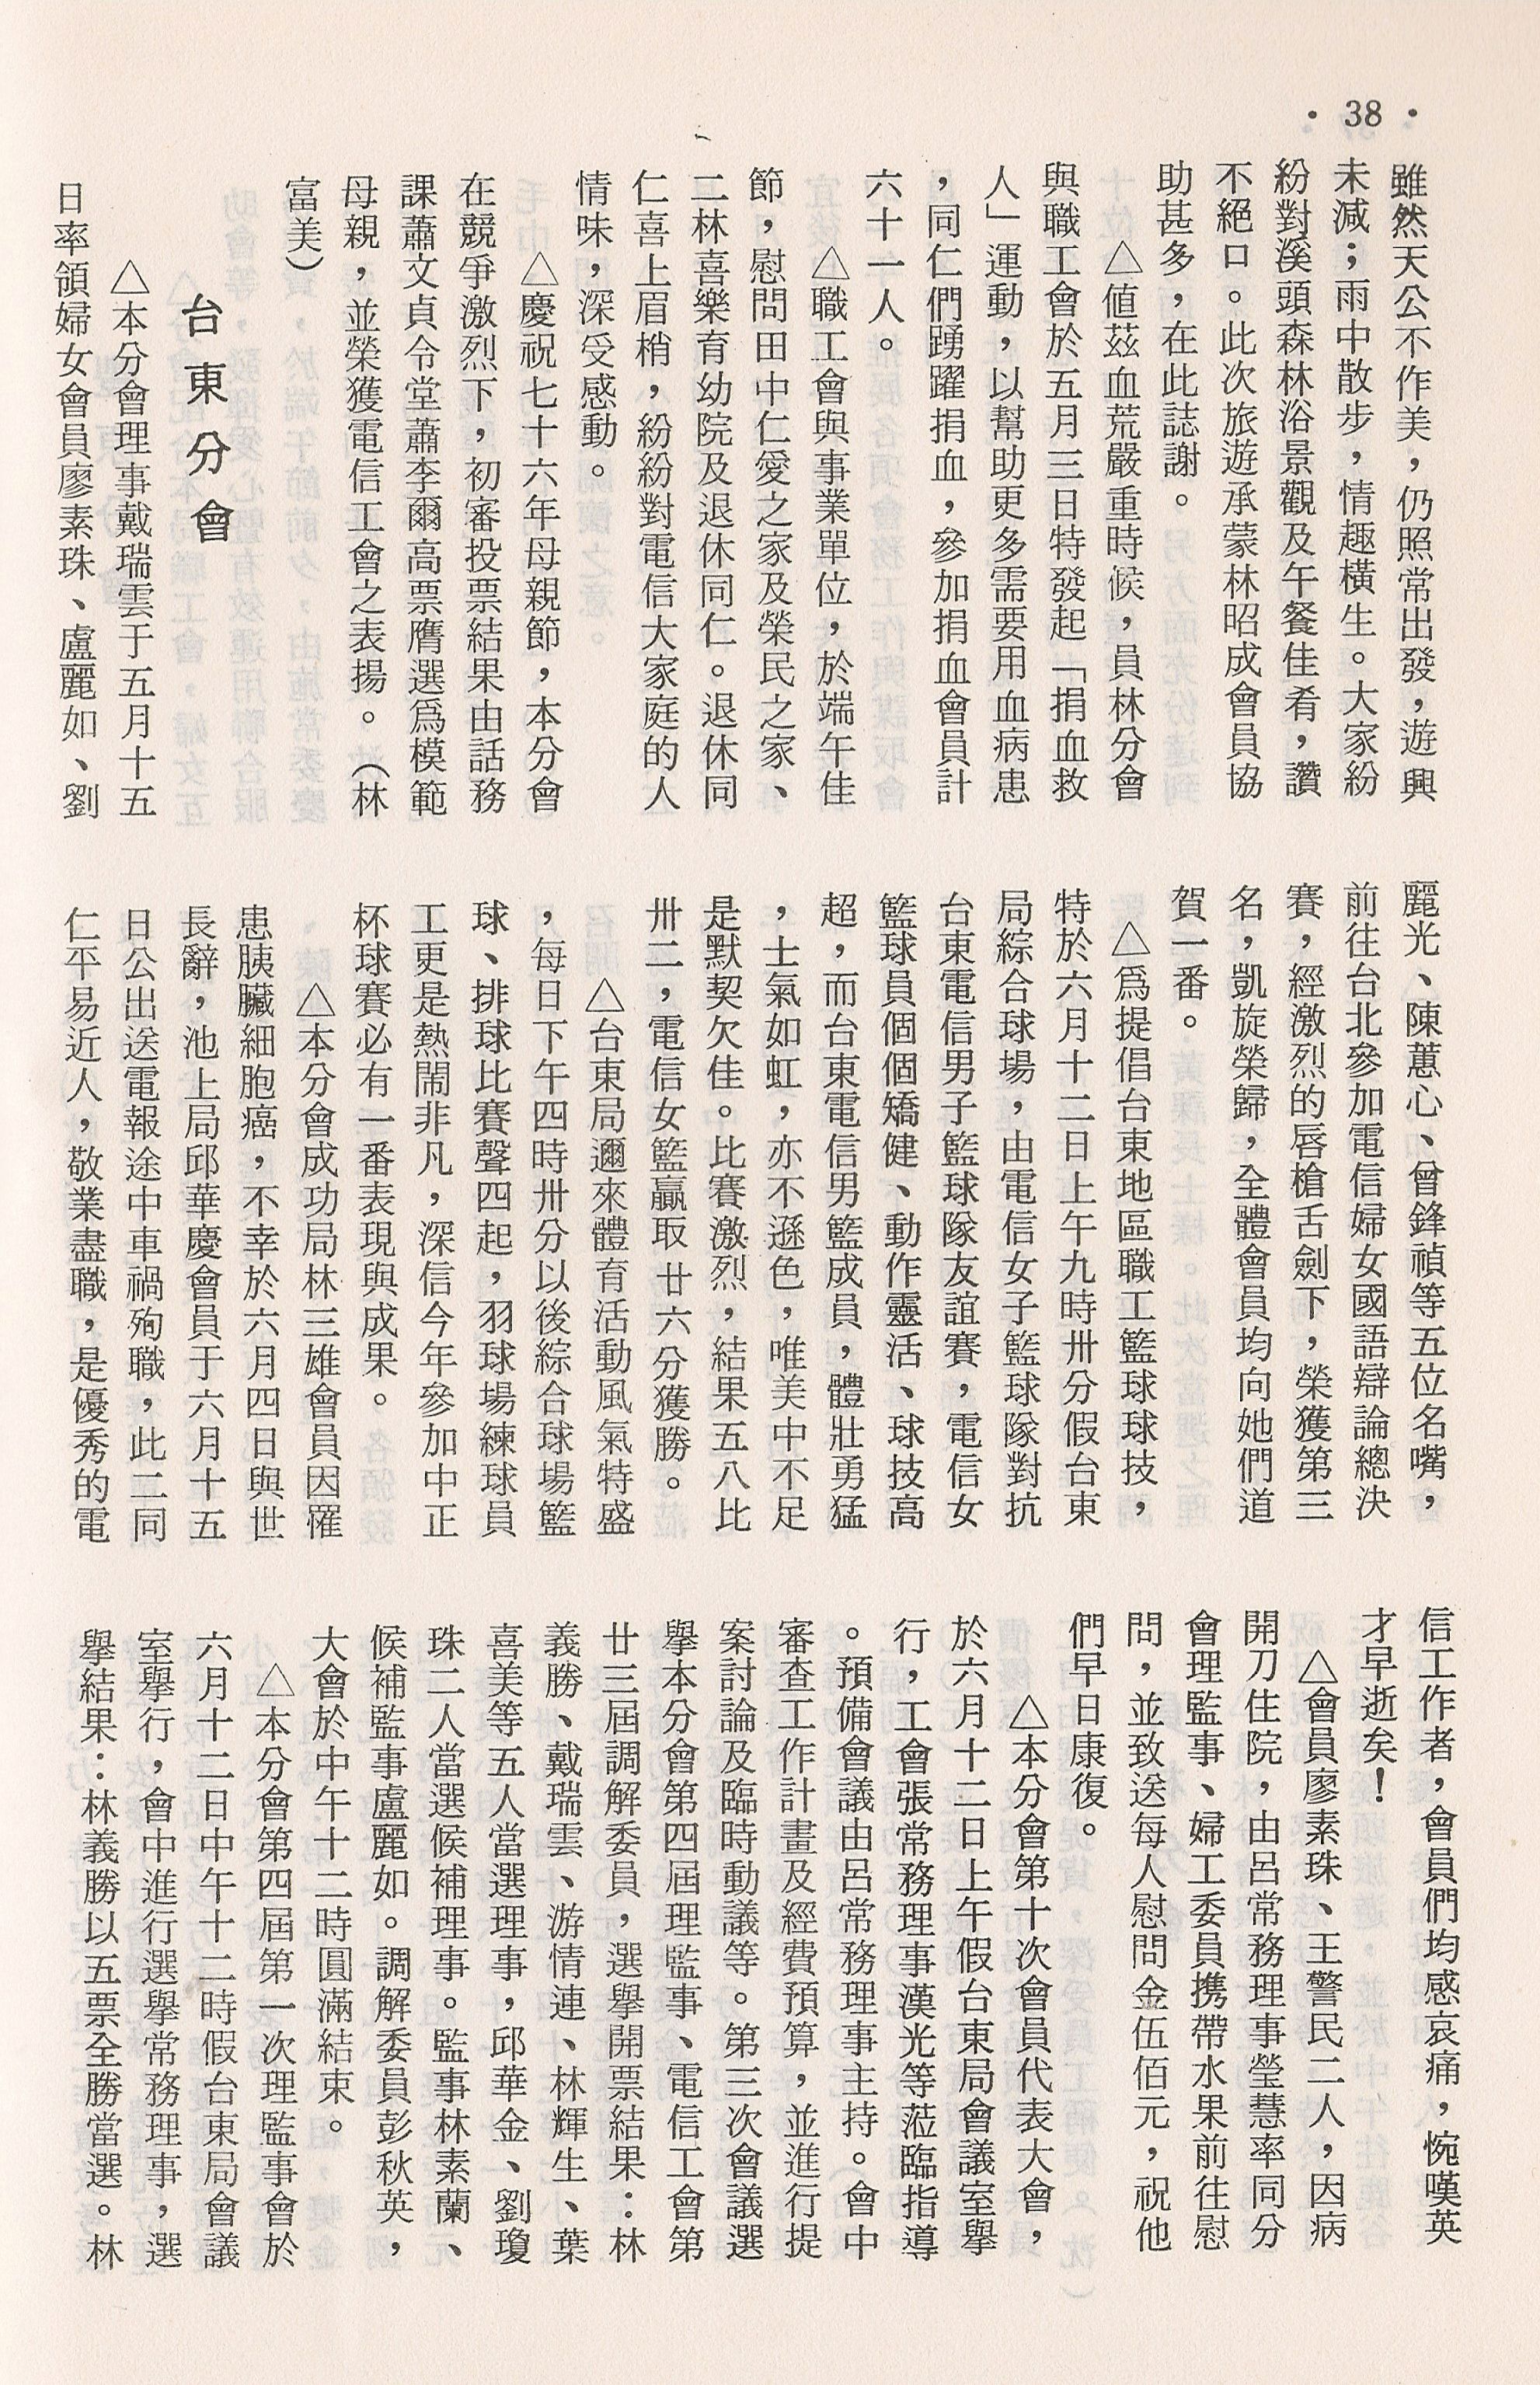 • 38 •
雖然天公不作美，仍照常出發，遊興
未減；雨中散步，情趣橫生。大家紛
紛對溪頭森林浴景觀及午餐佳肴，讚
不絕口。此次旅遊承蒙林昭成會員協
助甚多，在此誌謝。
△値茲血荒嚴重時候，員林分會
與職工會於五月三日特發起「捐血救
人」運動，以幫助更多需要用血病患
，同仁們踴躍捐血，參加捐血會員計
六十一人。
△職工會與事業單位，於端午佳
節，慰問田中仁愛之家及榮民之家、
二林喜樂育幼院及退休同仁。退休同
仁喜上眉梢，紛紛對電信大家庭的人
情味，深受感動。
△慶祝七十六年母親節，本分會
在競爭激烈下，初審投票結果由話務
課蕭文貞令堂蕭李爾高票膺選爲模範
母親，並榮獲電信工會之表揚。（林
富美）
台東分會
△本分會理事戴瑞雲于五月十五
日率領婦女會員廖素珠、盧麗如、劉
麗光、陳蕙心、曾鋒禎等五位名嘴，
前往台北參加電信婦女國語辯論總決
賽，經激烈的唇槍舌劍下，榮獲第三
名，凱旋榮歸，全體會員均向她們道
賀一番。
△爲提倡台東地區職工籃球球技，
特於六月十二日上午九時卅分假台東
局綜合球場，由電信女子籃球隊對抗
台東電信男子籃球隊友誼賽，電信女
籃球員個個矯健、動作靈活、球技高
超，而台東電信男籃成員，體壯勇猛
，士氣如虹，亦不遜色，唯美中不足
是默契欠佳。比賽激烈，結果五八比
卅二，電信女籃贏取廿六分獲勝。
△台東局邇來體育活動風氣特盛
，每日下午四時卅分以後綜合球場籃
球、排球比賽聲四起，羽球場練球員
工更是熱鬧非凡，深信今年參加中正
杯球賽必有一番表現與成果。
△本分會成功局林三雄會員因罹
患胰臟細胞癌，不幸於六月四日與世
長辭，池上局邱華慶會員于六月十五
日公出送電報途中車禍殉職，此二同
仁平易近人，敬業盡職，是優秀的電
信工作者，會員們均感哀痛，惋嘆英
才早逝矣！
△會員廖素珠、王警民二人，因病
開刀住院，由呂常務理事瑩慧率同分
會理監事、婦工委員携帶水果前往慰
問，並致送每人慰問金伍佰元，祝他
們早日康復。
△本分會第十次會員代表大會，
於六月十二日上午假台東局會議室舉
行，工會張常務理事漢光等蒞臨指導
。預備會議由呂常務理事主持。會中
審查工作計畫及經費預算，並進行提
案討論及臨時動議等。第三次會議選
舉本分會第四屆理監事、電信工會第
廿三屆調解委員，選舉開票結果：林
義勝、戴瑞雲、游情連、林輝生、葉
喜美等五人當選理事，邱華金、劉瓊
珠二人當選候補理事。監事林素蘭、
候補監事盧麗如。調解委員彭秋英，
大會於中午十二時圓滿結束。
△本分會第四屆第一次理監事會於
六月十二日中午十二時假台東局會議
室舉行，會中進行選舉常務理事，選
舉結果：林義勝以五票全勝當選。林